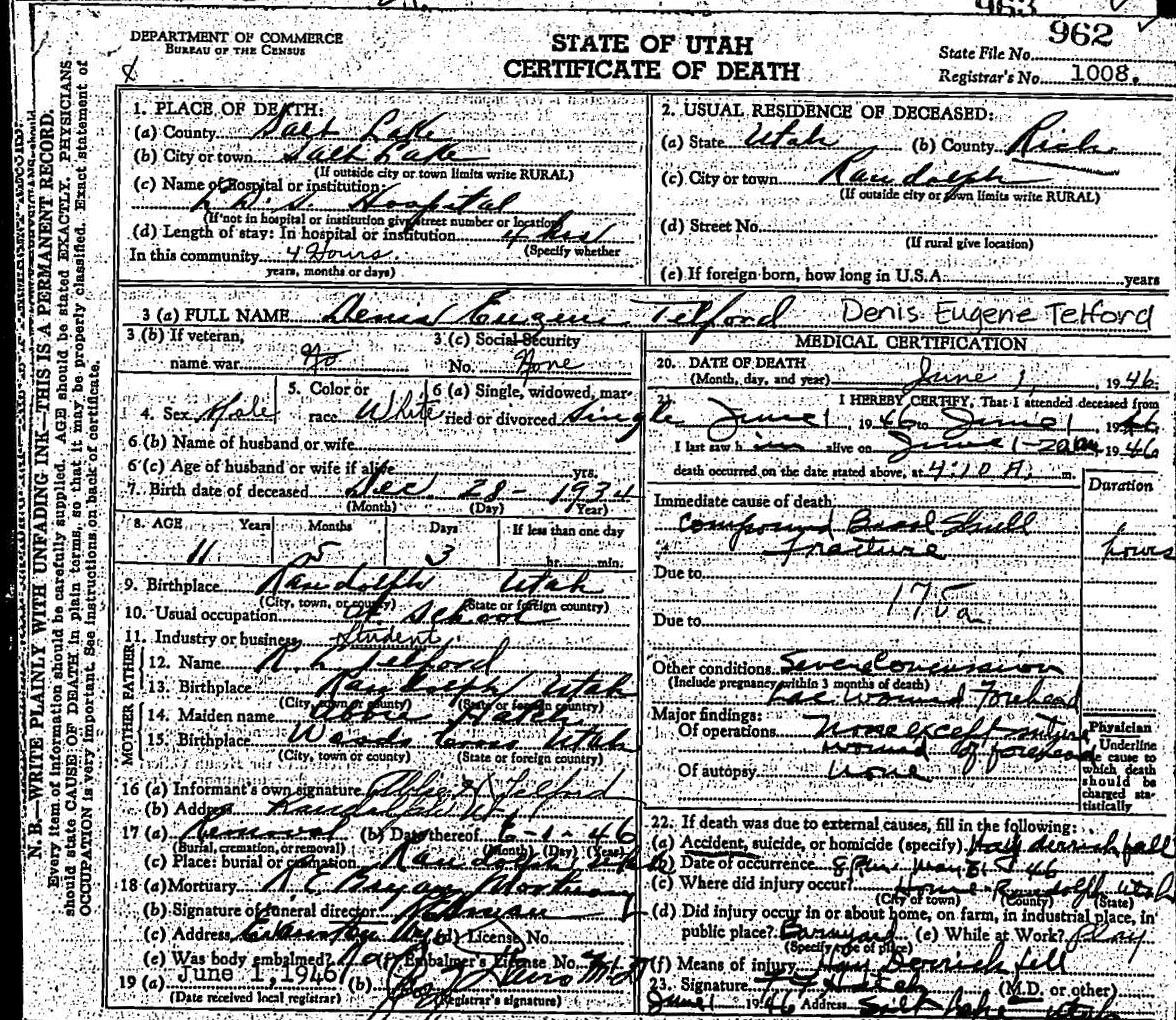 963
962
DEPARTMENT OF COMMERCE
BUREAU OF THE CENSUS
STATE OF UTAH
CERTIFICATE OF DEATH
State File No.
Registrar's No. 1008.
N. B.—WRITE PLAINLY WITH UNFADING INK—THIS IS A PERMANENT RECORD.
Every item of information should be carefully supplied. AGE should be stated EXACTLY. PHYSICIANS
should state CAUSE OF DEATH in plain terms, so that it may be properly classified. Exact statement of
OCCUPATION is very important. See instructions on back of certificate.
1. PLACE OF DEATH:
(a) County Salt Lake
(b) City or town Salt Lake
(If outside city or town limits write RURAL)
(c) Name of Hospital or institution:
L. D. S. Hospital
(If not in hospital or institution give street number or location)
(d) Length of stay: In hospital or institution 4 hrs
(Specify whether
In this community 4 Hours.
years, months or days)
2. USUAL RESIDENCE OF DECEASED:
(a) State Utah (b) County Rich
(c) City or town Randolph
(If outside city or town limits write RURAL)
(d) Street No.
(If rural give location)
(e) If foreign born, how long in U.S.A. years
3 (a) FULL NAME Denis Eugene Telford Denis Eugene Telford
3 (b) If veteran,
name war No
3 (c) Social Security
No. None
4. Sex Male
5. Color or
race White
6 (a) Single, widowed, mar-
ried or divorced Single
6 (b) Name of husband or wife
6 (c) Age of husband or wife if alive yrs.
7. Birth date of deceased Dec. 28 - 1934
(Month) (Day) Year)
8. AGE Years Months Days If less than one day
11 5 3 hr. min.
9. Birthplace Randolph Utah
(City, town, or county) (State or foreign country)
10. Usual occupation at School
11. Industry or business Student
FATHER
12. Name R. L. Telford
13. Birthplace Randolph Utah
(City, town or county) (State or foreign country)
MOTHER
14. Maiden name Abbie Hatch
15. Birthplace Woods Cross Utah
(City, town or county) (State or foreign country)
16 (a) Informant's own signature Telford
(b) Address Randolph Ut
17 (a) Removal (b) Date thereof 6-1-46
(Burial, cremation, or removal) (Month) (Day) (Year)
(c) Place: burial or cremation Randolph Utah
18 (a) Mortuary R E Bryan Mortuary
(b) Signature of funeral director
(c) Address Evanston Wyo (d) License No.
(e) Was body embalmed? (f) Embalmer's License No.
19 (a) June 1, 1946 (b)
(Date received local registrar) (Registrar's signature)
MEDICAL CERTIFICATION
20. DATE OF DEATH
(Month, day, and year) June 1, 1946.
21. I HEREBY CERTIFY, That I attended deceased from
June 1 1946 to June 1 1946
I last saw him alive on June 1- 1946
death occurred on the date stated above, at 4:10 A. m.
Duration
Immediate cause of death
Compound Basal Skull
Fracture hours
Due to
175a
Due to
Other conditions Severe Concussion
(Include pregnancy within 3 months of death)
Lac wound Forehead
Major findings:
Of operations None except suture
wound of forehead
Of autopsy None
Physician
Underline
the cause to
which death
should be
charged sta-
tistically
22. If death was due to external causes, fill in the following:
(a) Accident, suicide, or homicide (specify) Hay derrick fall
(b) Date of occurrence 8 P.m. May 31 46
(c) Where did injury occur? Home - Randolph Utah
(City of town) (County) (State)
(d) Did injury occur in or about home, on farm, in industrial place, in
public place? Barnyard (e) While at Work? Play
(Specify type of place)
(f) Means of injury Hay Derrick fell
23. Signature (M.D. or other)
June 1 1946 Address Salt Lake Utah